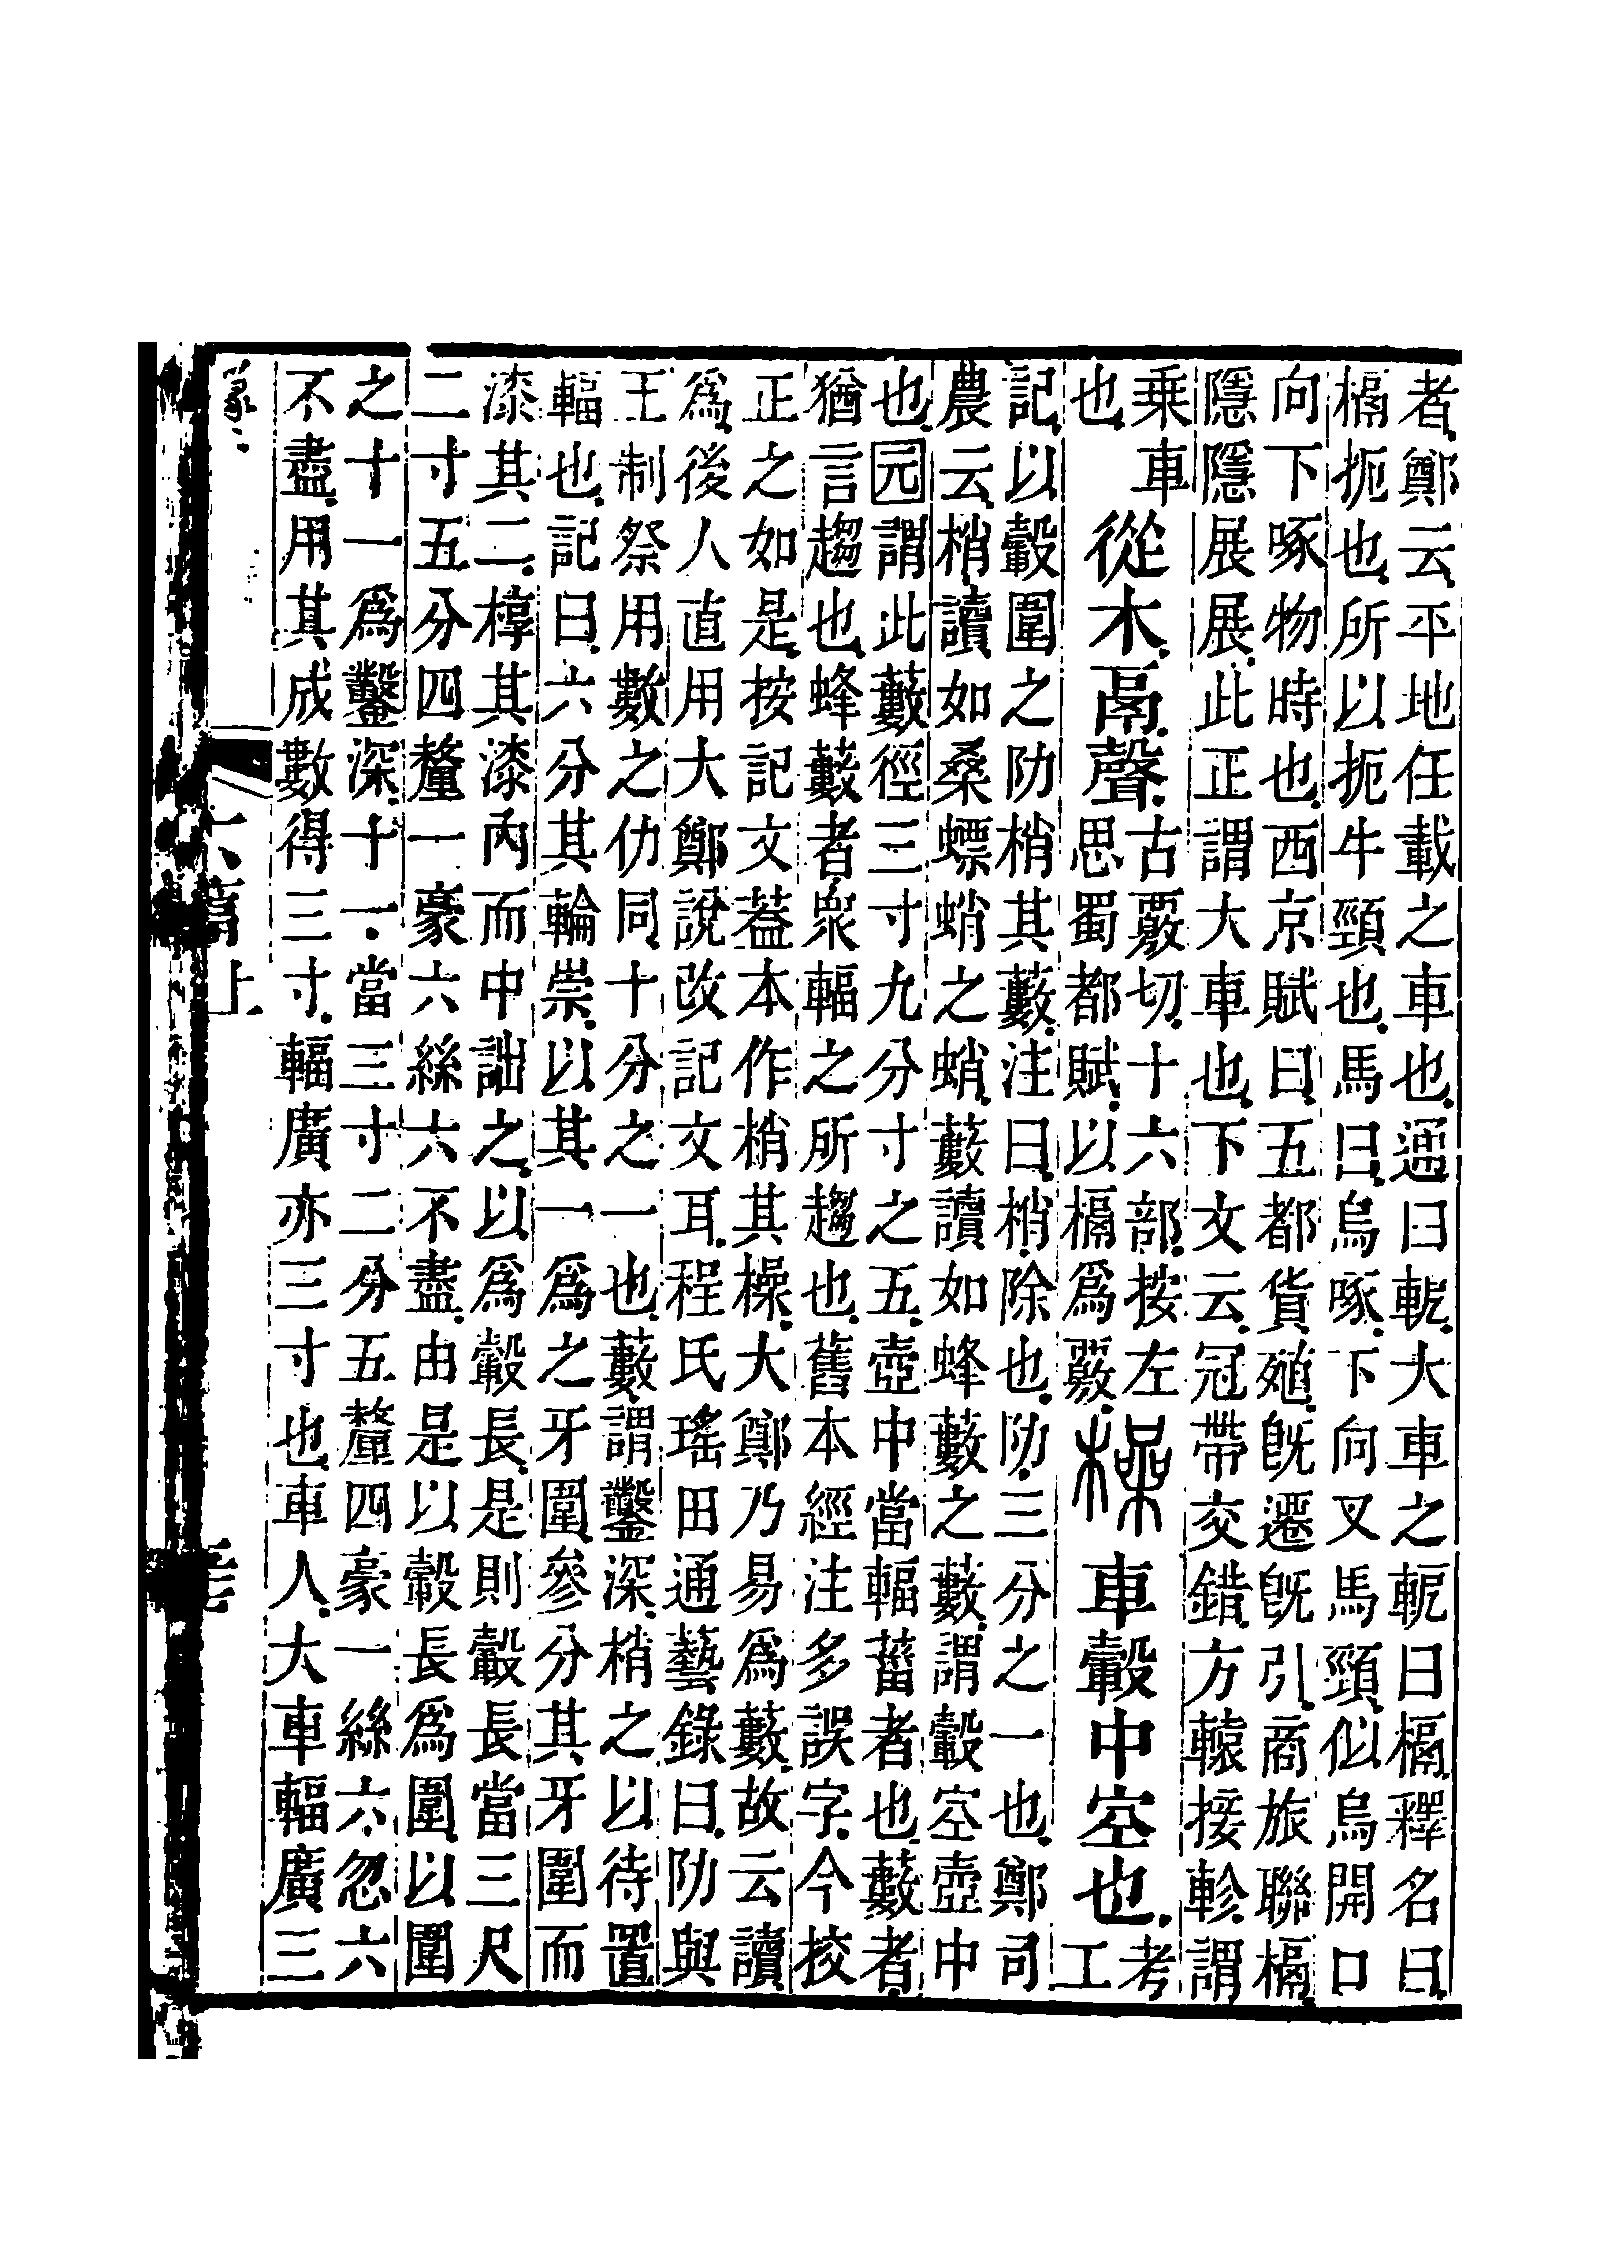 者。鄭云。平地任載之車也。通曰軶。大車之軶曰槅。釋名曰。
槅扼也。所以扼牛頸也。馬曰烏啄。下向叉馬頸。似烏開口
向下啄物時也。西京賦曰。五都貨殖。旣遷旣引。商旅聯槅。
隱隱展展。此正謂大車也。下文云。冠帶交錯。方轅接軫。謂
乗車
也
從木。鬲聲。
古覈切。十六部。按左
思蜀都賦。以槅爲覈。
橾
車轂中空也。
考
工
記。以轂圍之阞梢其藪。注曰。梢。除也。阞。三分之一也。鄭司
農云。梢讀如桑螵蛸之蛸。藪讀如蜂藪之藪。謂轂空壺中
也。元謂此藪徑三寸九分寸之五。壺中當輻菑者也。藪者。
猶言趨也。蜂藪者。衆輻之所趨也。舊本經注多誤字。今挍
正之如是。按記文葢本作梢其橾。大鄭乃易爲藪。故云讀
爲。後人直用大鄭說改記文耳。程氏瑤田通藝錄曰。阞與
王制祭用數之仂同。十分之一也。藪謂鑿深。梢之以待置
輻也。記曰。六分其輪崇。以其一爲之牙圍。參分其牙圍而
漆其二。椁其漆內而中詘之。以爲轂長。是則轂長當三尺
二寸五分四釐一豪六絲六不盡。由是以轂長爲圍。以圍
之十一爲鑿深。十一。當三寸二分五釐四豪一絲六忽六
不盡。用其成數得三寸。輻廣亦三寸也。車人。大車輻廣三
篆二
六篇上